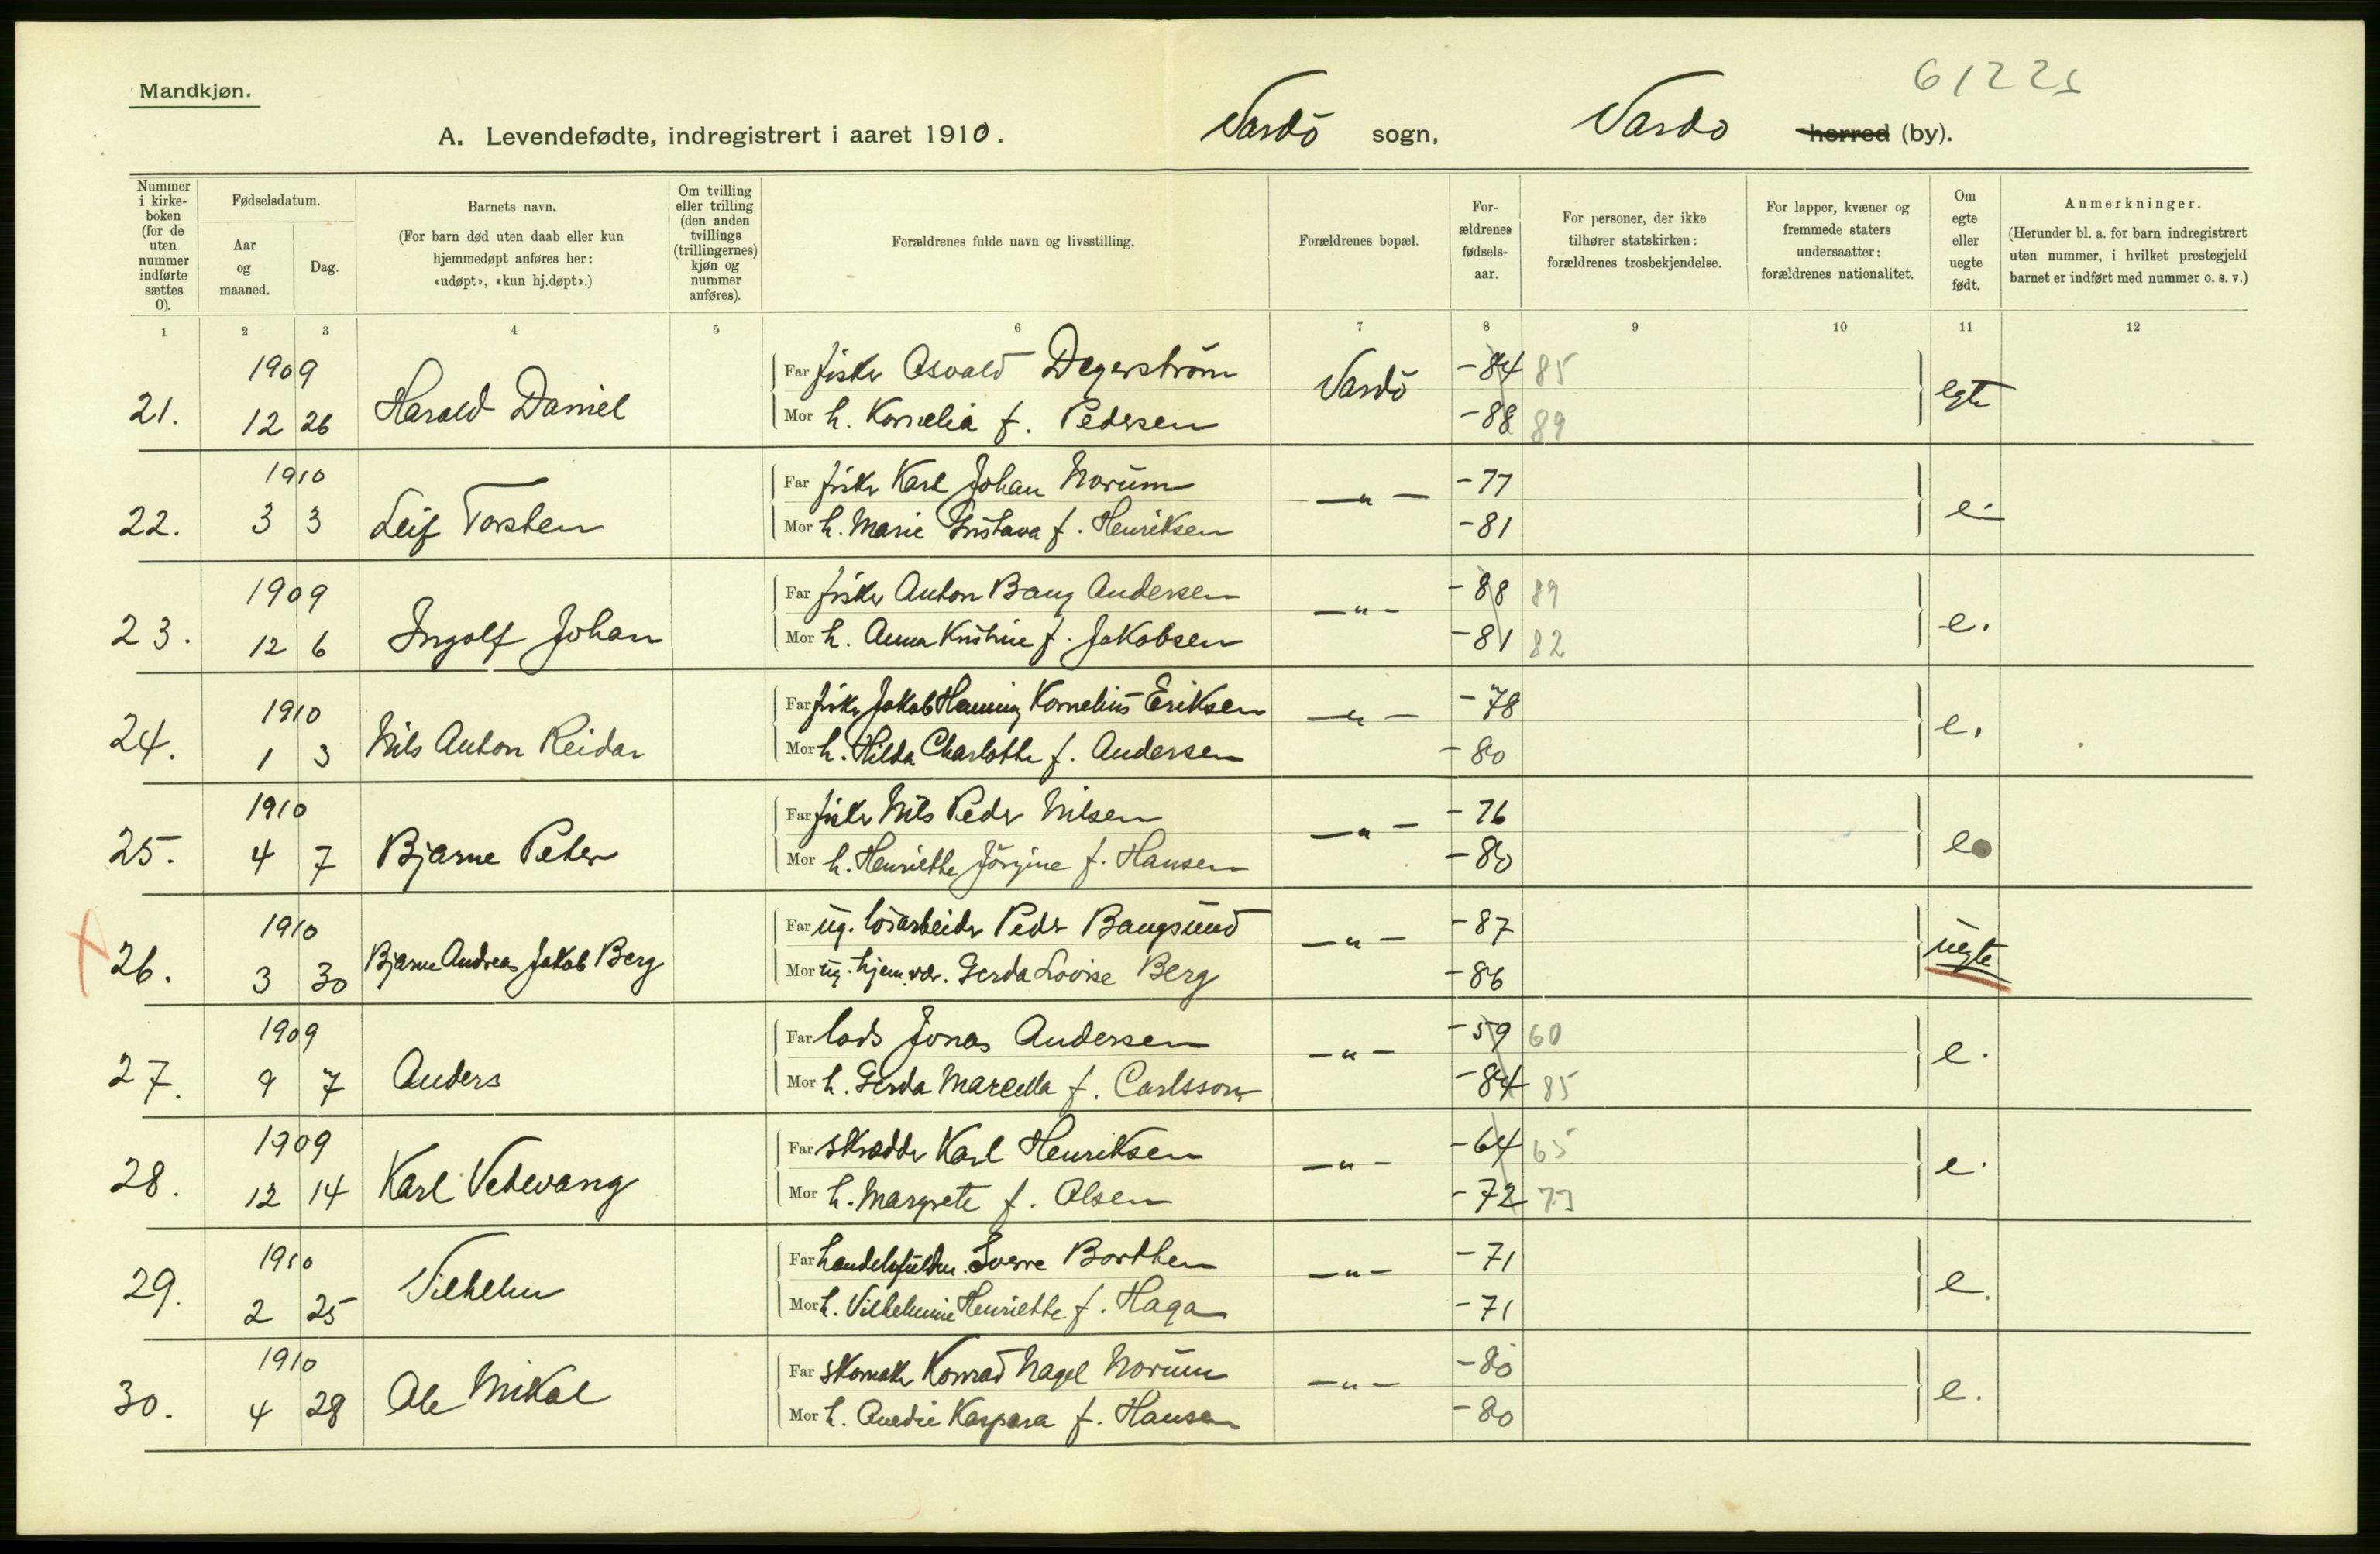 61221
Mandkjøn.
A. Levendefødte, indregistrert i aaret 1910. Vardö sogn, Vardö herred (by).
Nummer i kirke-boken (for de uten nummer indførte sættes 0).
Fødselsdatum.
Aar og maaned.
Dag.
Barnets navn.
(For barn død uten daab eller kun hjemmedøpt anføres her: «udøpt», «kun hj.døpt».)
Om tvilling eller trilling (den anden tvillings (trillingernes) kjøn og nummer anføres).
Forældrenes fulde navn og livsstilling.
Forældrenes bopæl.
For-ældrenes fødsels-aar.
For personer, der ikke tilhører statskirken: forældrenes trosbekjendelse.
For lapper, kvæner og fremmede staters undersaatter: forældrenes nationalitet.
Om egte eller uegte født.
Anmerkninger.
(Herunder bl. a. for barn indregistrert uten nummer, i hvilket prestegjeld barnet er indført med nummer o. s. v.)
1 2 3 4 5 6 7 8 9 10 11 12
1909
21. 12 26 Harald Daniel
Far fisker Osvald Degerström Vardö -84 85 egte
Mor h. Kornelia f. Pedersen -88 89
1910
22. 3 3 Leif Torsten
Far fisker Karl Johan Norum —"— -77 e.
Mor h. Marie Gustava f. Henriksen -81
1909
23. 12 6 Ingolf Johan
Far fisker Anton Bang Andersen —"— -88 89 e.
Mor h. Anna Kristine f. Jakobsen -81 82
1910
24. 1 3 Nils Anton Reidar
Far fisker Jakob Henning Kornelius Eriksen —"— -78 e.
Mor h. Hilda Charlotte f. Andersen -80
1910
25. 4 7 Bjarne Peter
Far fisker Nils Peder Nilsen —"— -76 e
Mor h. Henriette Jörgine f. Hansen -80
1910
26. 3 30 Bjarne Andreas Jakob Berg
Far ug. lösarbeider Peder Bangsund —"— -87 uegte
Mor ug. hjem.vær. Gerda Lovise Berg -86
1909
27. 9 7 Anders
Far lods Jonas Andersen —"— -59 60 e.
Mor h. Gerda Marcella f. Carlsson -84 85
1909
28. 12 14 Karl Vetevang
Far skrædder Karl Henriksen —"— -64 65 e.
Mor h. Margrete f. Olsen -72 73
1910
29. 2 25 Vilhelm
Far handelsfuldm. Sverre Borthen —"— -71 e.
Mor h. Vilhelmine Henriette f. Haga -71
1910
30. 4 28 Ole Mikal
Far skomaker Konrad Nagel Norum —"— -80 e.
Mor h. Anedie Kaspara f. Hansen -80